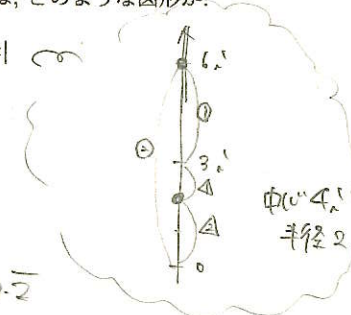 どのような図形か.
6i
①
②
3i
0
中心 4i
半径 2